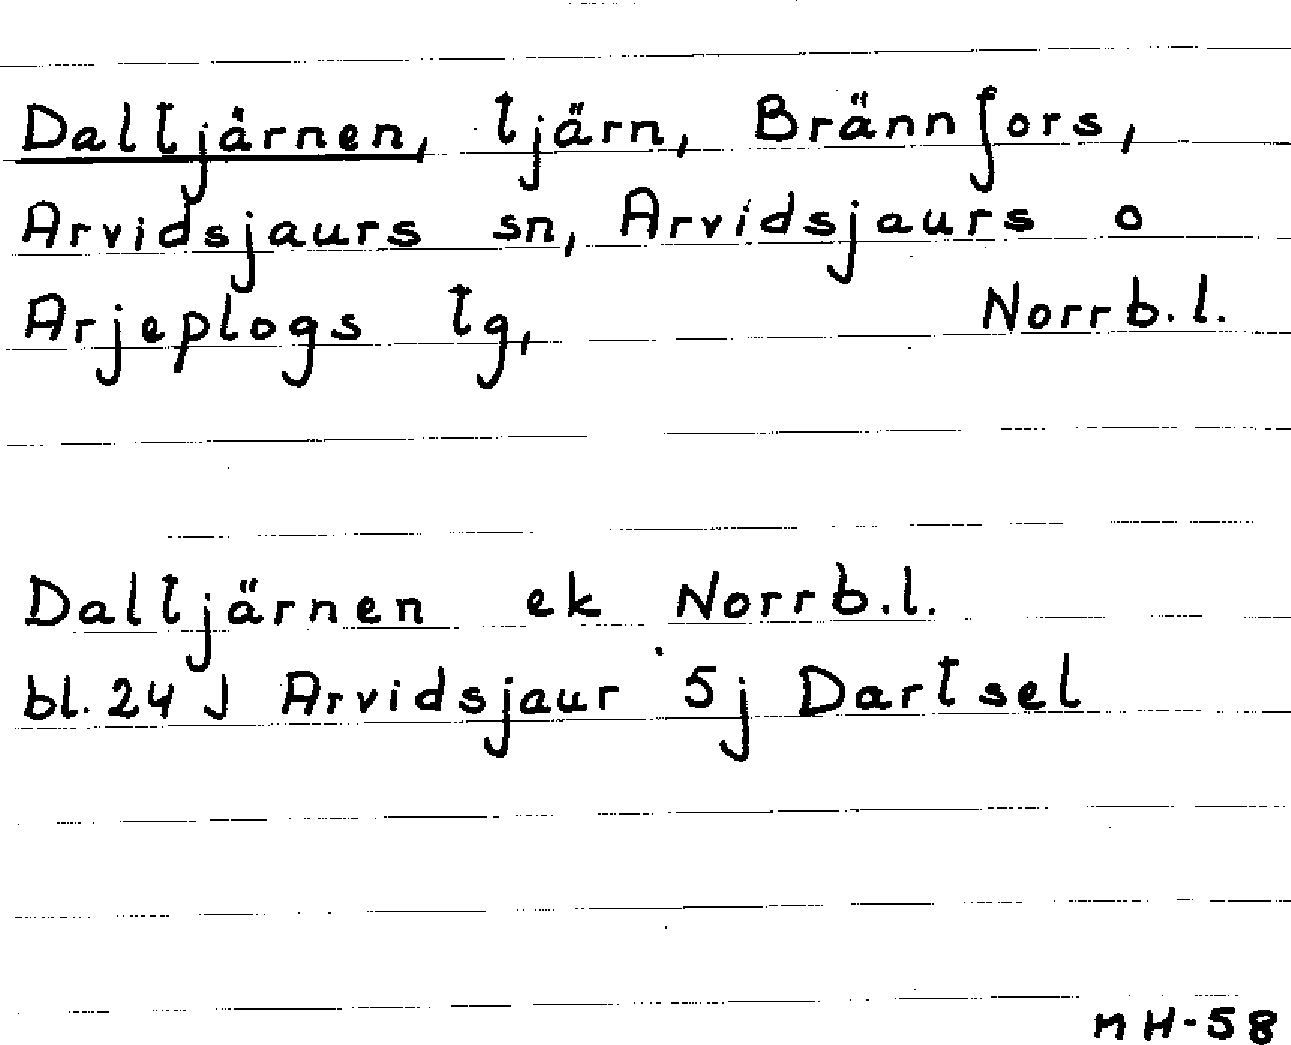 Daltjärnen, tjärn, Brännfors,
Arvidsjaurs sn, Arvidsjaurs o
Arjeplogs tg, Norrb.l.
Daltjärnen ek Norrb.l.
bl. 24 J Arvidsjaur 5j Dartsel
nH-58